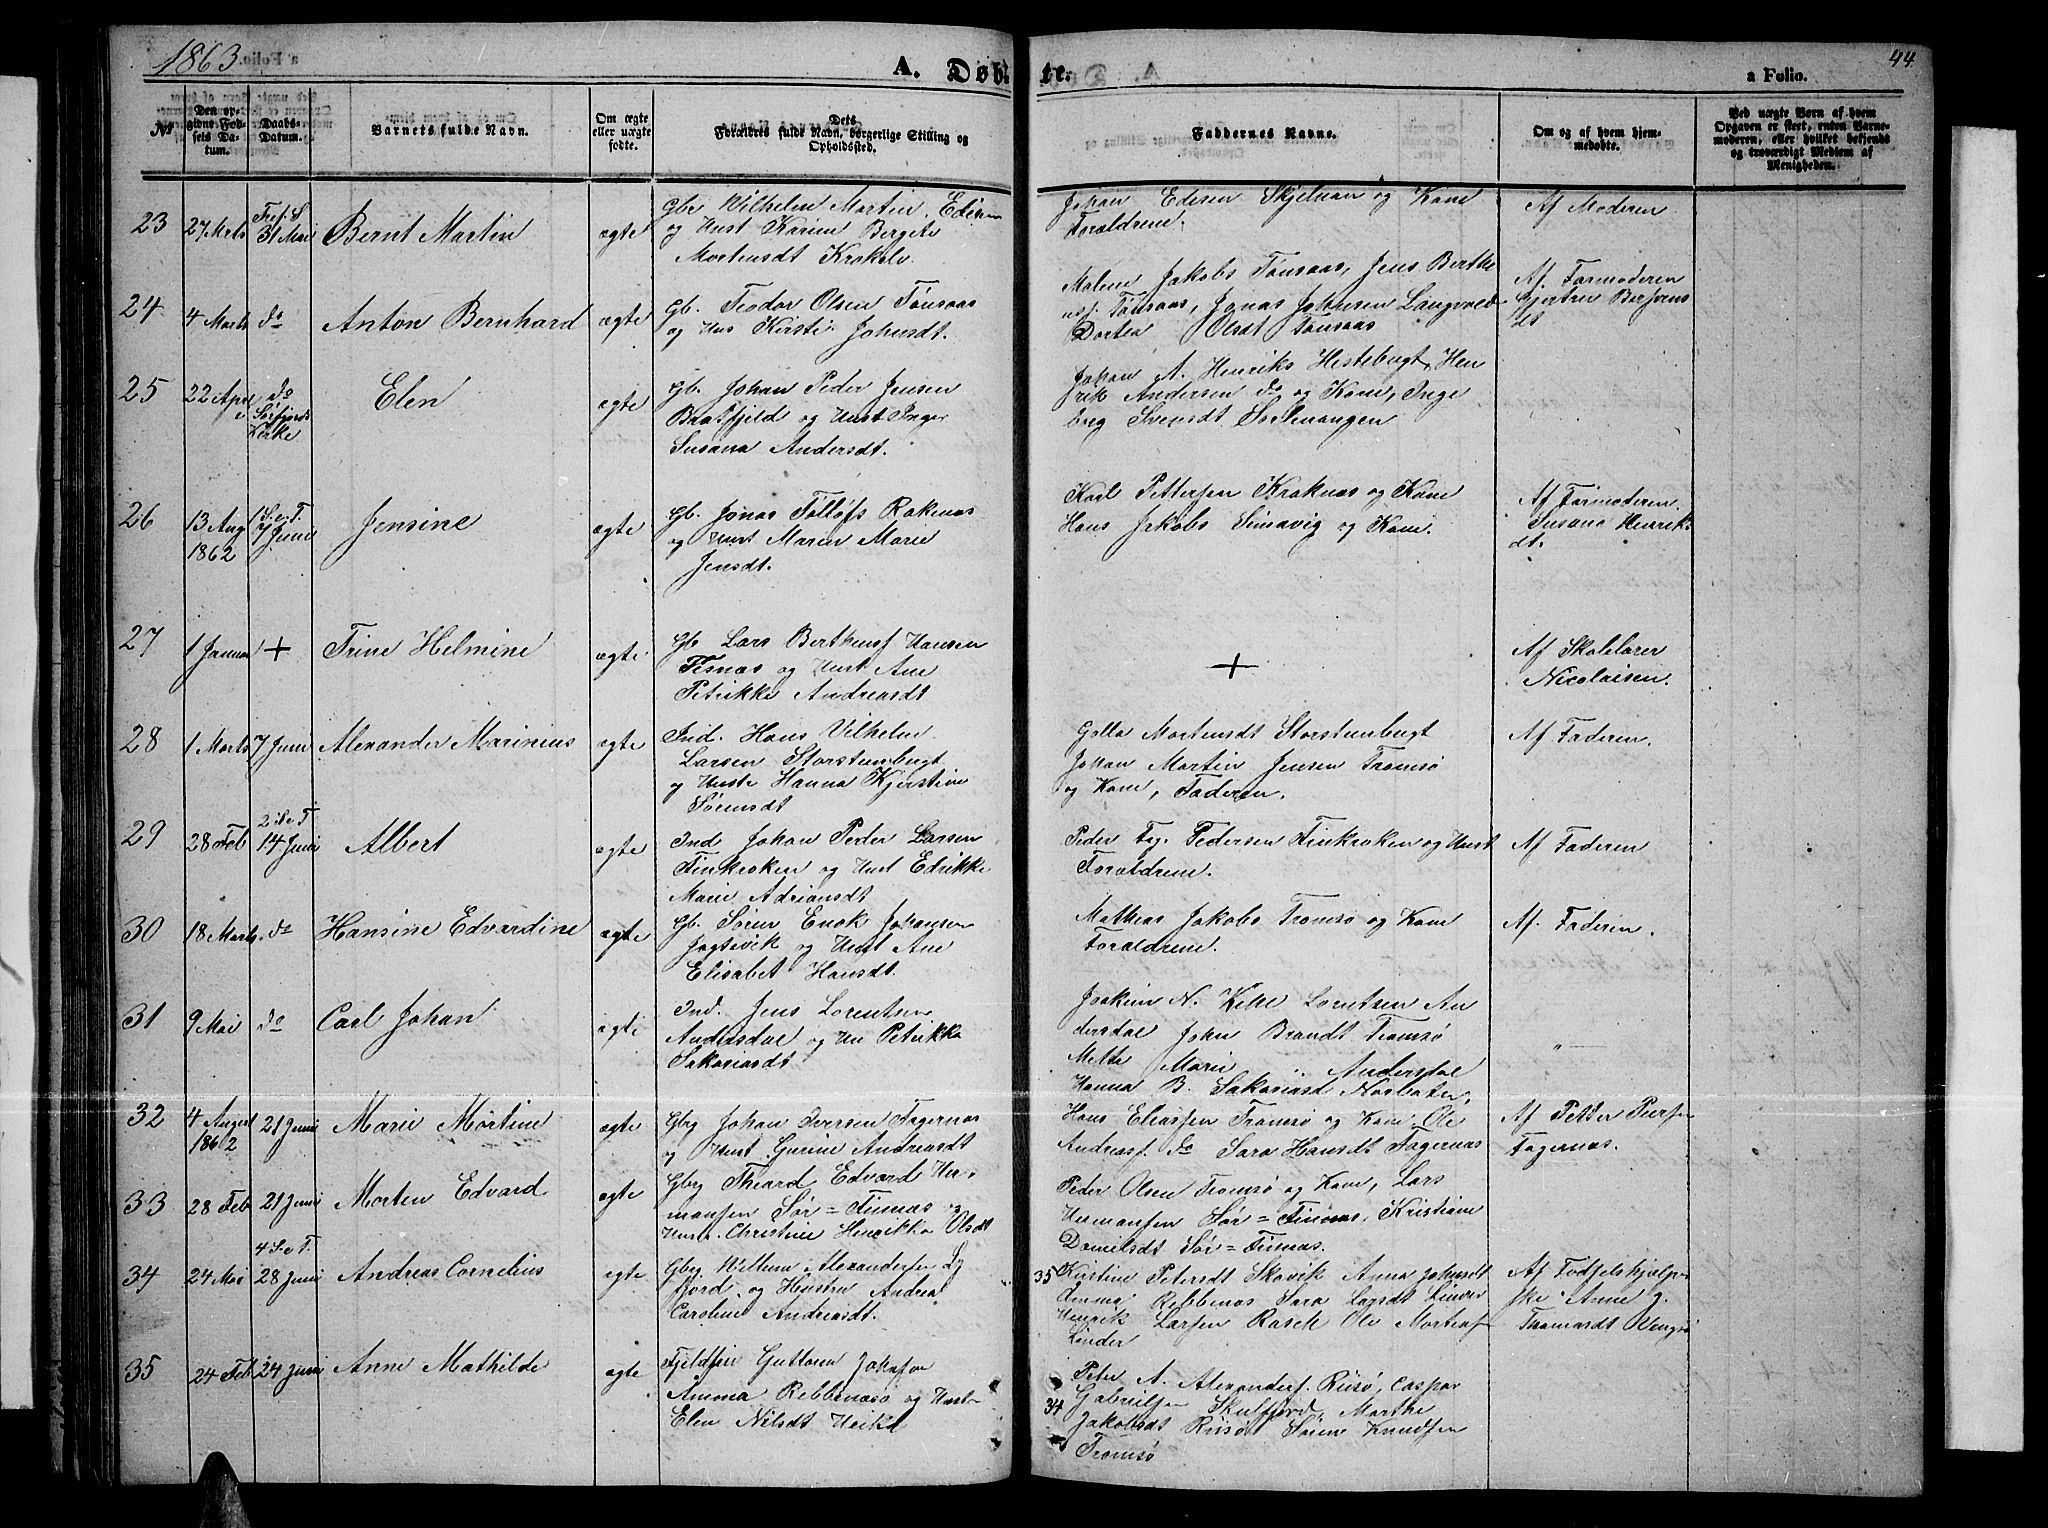 1863.
A. Døbte.
44
a Folio.
No
Den opgivne Fødsels Datum.
Daabs-Datum.
Barnets fulde Navn.
Om ægte eller uægte fødte.
Dets Forældres fulde Navn, borgerlige Stilling og Opholdssted.
Faddernes Navne.
Om og af hvem hjemmedøbte.
Ved uægte Børn af hvem Opgaven er skeet, enten Barnemoderen, eller hvilket bekjendt og troværdigt Medlem af Menigheden.
23
27 Mrts
31 Mai
Bernt Martin
ægte
Gbr Vilhelm Martin
og Hust Karen Bergete
Mortensdt Krokelv.
Johan Edisen Skjelnan og Kone
Forældrene.
Af Moderen
24
4 Marts
do
Anton Bernhard
ægte
Gb. Teodor Olsen Tønsaas
og Hus Kirsti Johnsdt.
Malene Jakobs Tønsaas, Jens Berthe
Tønsaas, Jonas Johnsen
Dortea Olsdt Tønsaas
Af Farmoderen
25
22 April
do
Sørfjords
Kirke
Elen
ægte
Gb. Johan Peder Jensen
og Hust Inger
Susana Andersdt.
Johan A. Henriks Hestebugt, Hen
rik Andersen do og Kone, Inge
borg
26
13 Aug
1862
1 S. e. T.
7 Juni
Jensine
ægte
Gb. Jonas
og Hust Maren Marie
Jensdt.
Karl Pettersen Kraknes og Kone
Hans Jakobs Simavig og Kone.
Af Farmoderen
Susana Henriks
dt.
27
1 Januar
+
Trine Helmine
ægte
Gb. Lars Bertheusf Hansen
og Hust Ane
Petrikke Andreasdt
+
Af Skolelærer
Nicolaisen.
28
1 Marts
7 Juni
Alexander Marinius
ægte
Ind. Hans Vilhelm
Larsen Storstenbugt
og Huste Hanna Kjerstine
Sørensdt
Mortensdt Storstenbugt
Johan Martin Jensen Tromsø
og Kone, Faderen.
Af Faderen.
29
28 Feb
2 S e T
14 Juni
Albert
ægte
Ind Johan Peder Larsen
Finkroken og Hust Edrikke
Marie Adriansdt
Peder Pedersen Finkroken og Hust
Forældrene.
Af Faderen
30
18 Marts
do
Hansine Edvardine
ægte
Gb. Sören Enok Johansen
Jagtevik og Hust Ane
Elisabet Hansdt.
Mathias Jakobs Tromsø og Kone
Forældrene.
Af. Faderen.
31
9 Mai
do
Carl Johan
ægte
Ind. Jens Lorentsen
Andersdal og Hu Petrikka
Sakariasdt
Joakim N. Lorentsen An
dersdal John Brandt Tromsø
Mette Marie Andersdal
Hanna B. Sakariasd
32
4 August
1862
21 Juni
Marie Mortine
ægte
Gbrg Johan Iversen Fagernæs
og Hust. Gurine Andreasdt
Hans Eliassen Tromsø og Kone. Ole
Andreasf. do Sara Hansdt Fagernæs
Af Petter
Fagernæs.
33
28 Feb
21 Juni
Morten Edvard
ægte
Gbrg Theard Edvard Her
mansen Sør=Tisnæs og
Hust. Christine Henrikka Olsdt
Peder Olsen Tromsø og Kone, Lars
Hermansen Sør=Tisnæs, Kristiane
Danielsdt Sør=Tisnæs.
34
24 Mai
4 S. e T.
28 Juni
Andreas Cornelius
ægte
Gbrg Willum Alexandersen
fjord, og Hustru Andrea
Caroline Andreasdt.
35 Kirstine Petersdt Skavik Anna Johnsdt
Rebbenæs Sara Larsdt
Henrik Larsen Rasch Ole Mortens
35
24 Feb
24 Juni
Anne Mathilde
ægte
Fjeldfin Guttorm
Rebbenæsø og Hust
Elen Nilsdt
34
Peter A. Alexanders. Riisø, Caspar
Gabrielsen Skulfjord, Marthe
Jakobsdt Riisø Sören Knudsen
Tromsø